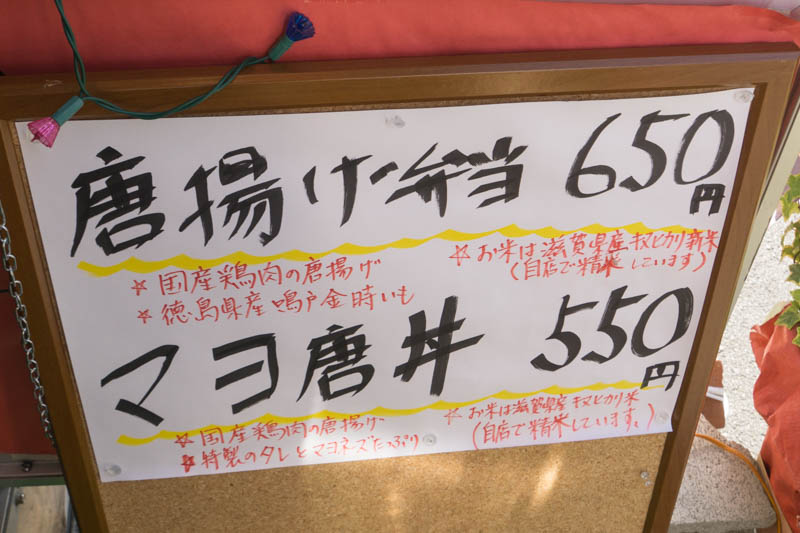 唐揚げ弁当 650円
☆国産鶏肉の唐揚げ
☆徳島県産鳴戸金時いも
☆お米は滋賀県産キヌヒカリ新米
(自店で精米しています)
マヨ唐丼 550円
☆国産鶏肉の唐揚げ
☆特製のタレとマヨネーズたっぷり
☆お米は滋賀県産キヌヒカリ米
(自店で精米しています。)